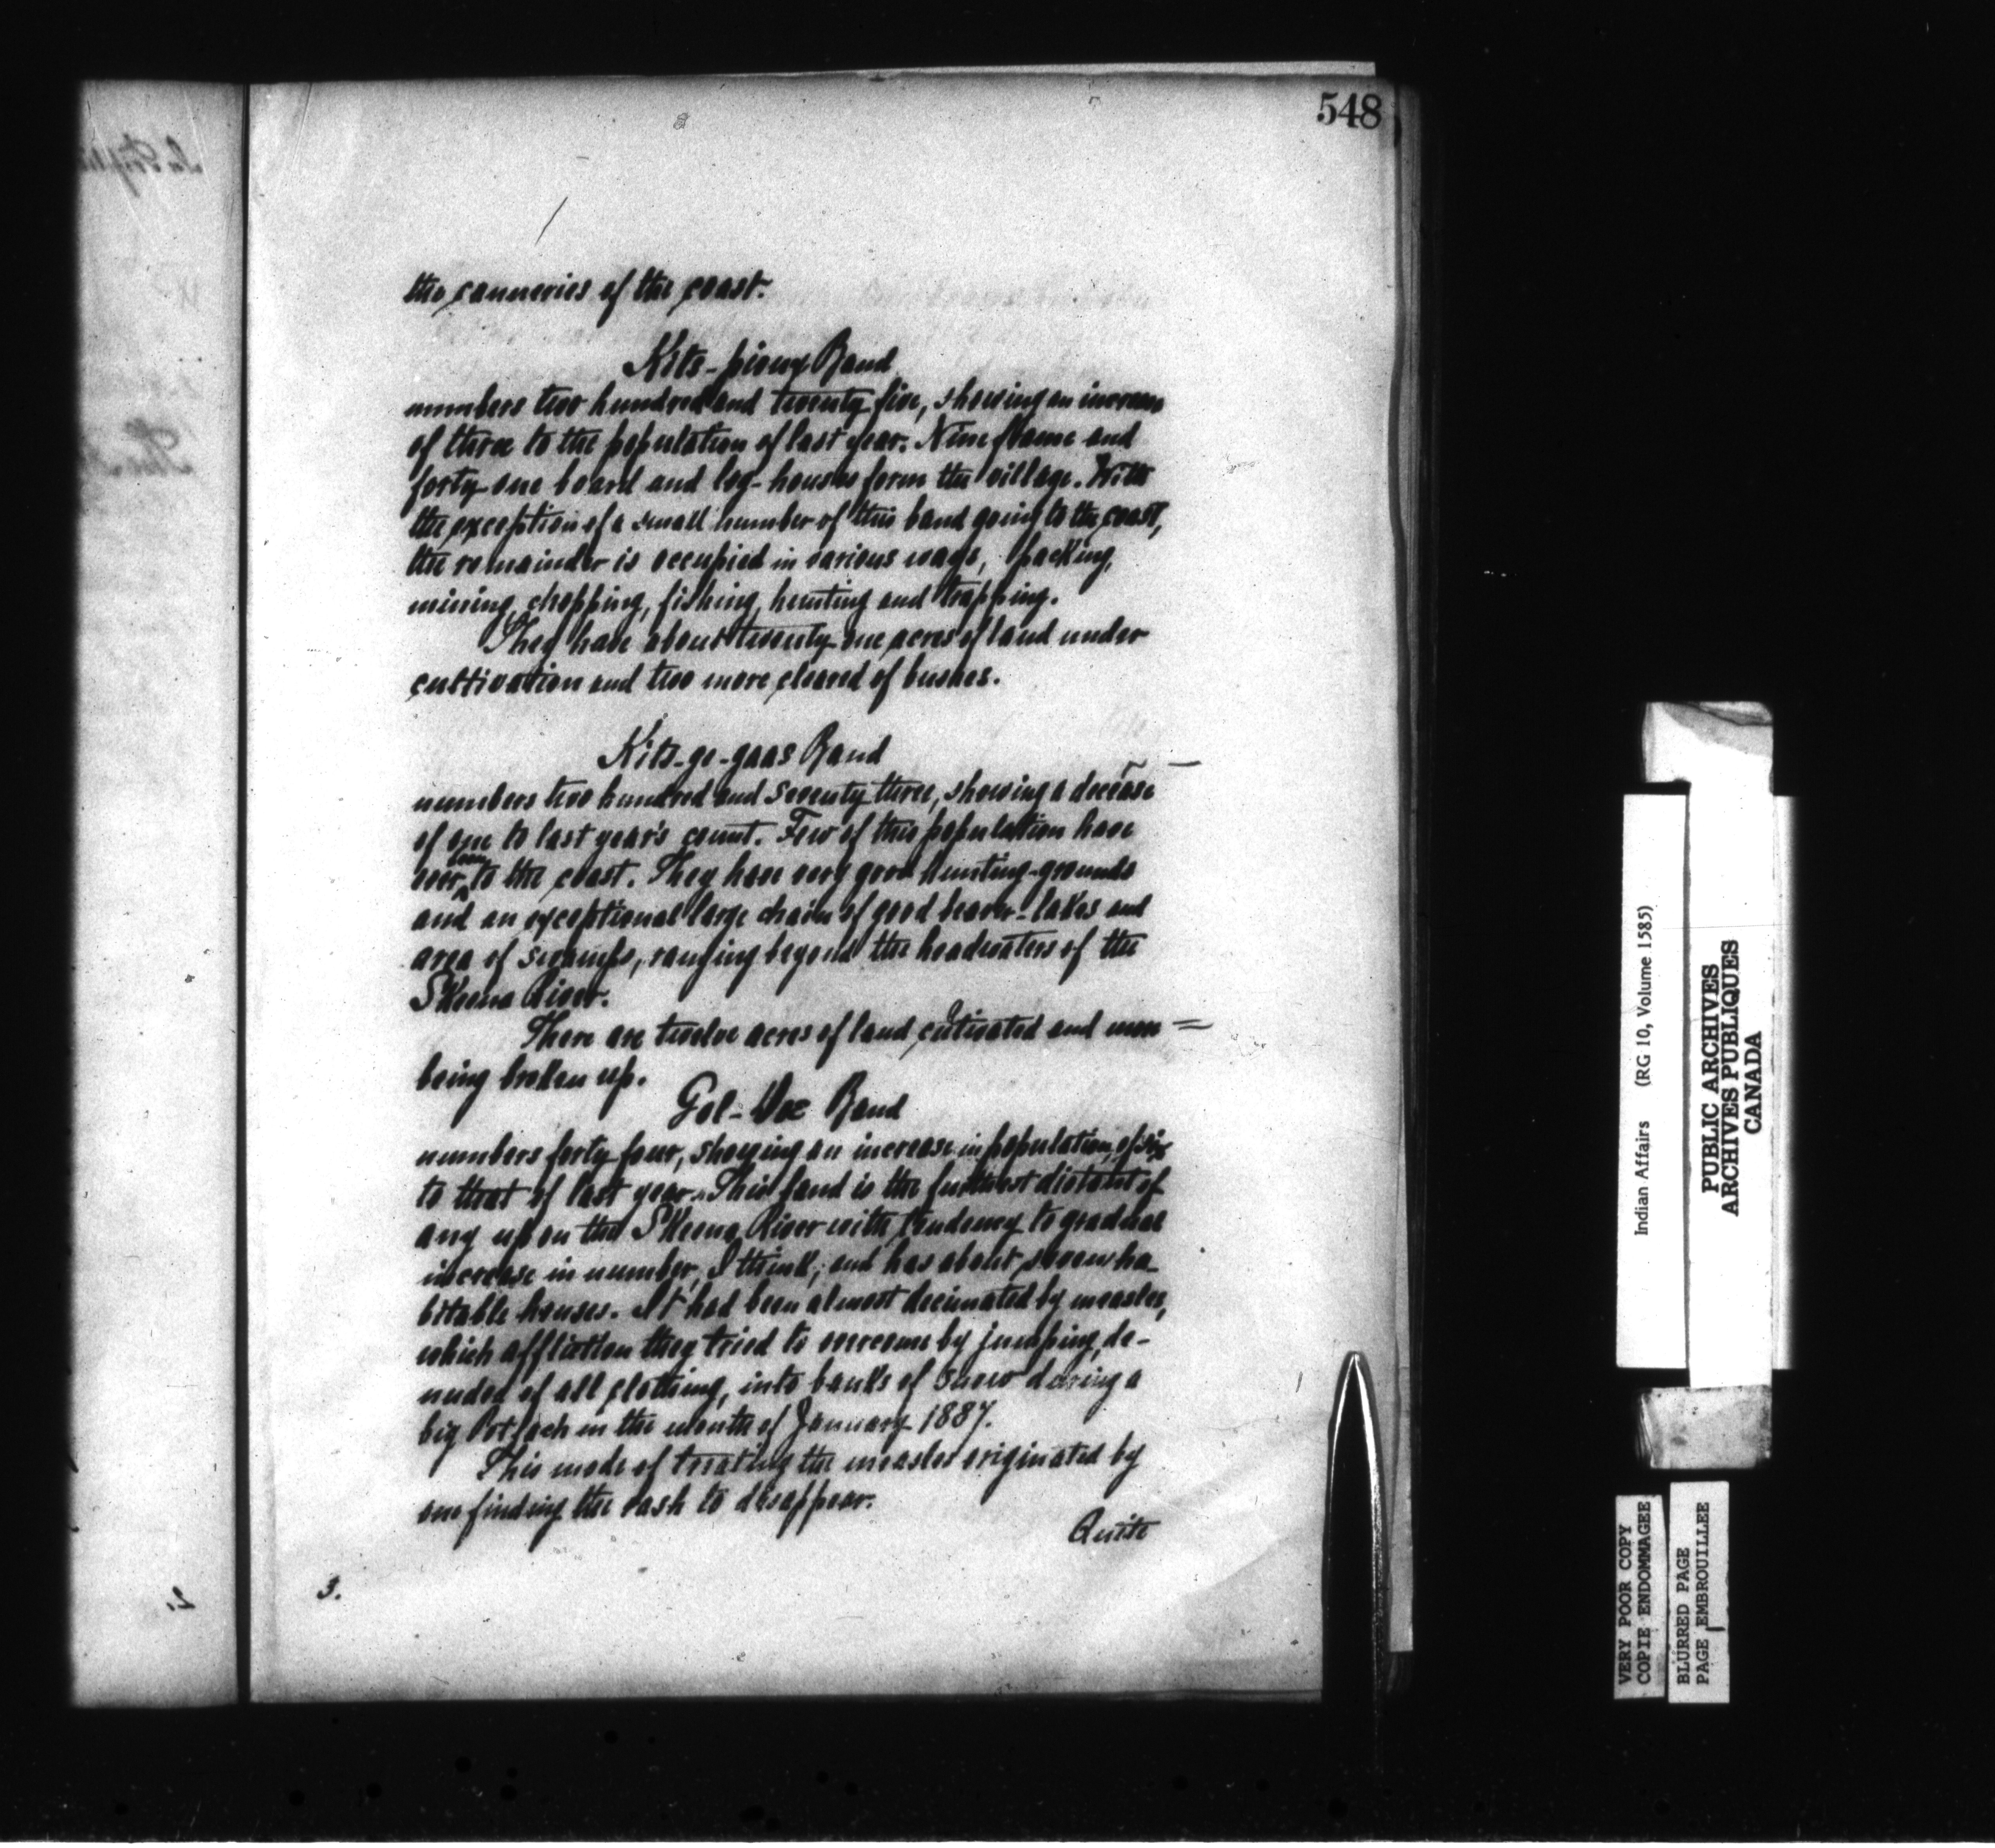 548
the canneries of the coast.
Kits-pioux Band
numbers two hundred and twenty five, showing an increase
of three to the population of last year. Nine frame and
forty-one board and log-houses form the village. With
the exception of a small number of this band going to the coast,
the remainder is occupied in various ways, packing,
mining, chopping, fishing, hunting and trapping.
They have about twenty-one acres of land under
cultivation and two more cleared of bushes.
Kits-ge-gaas Band
numbers two hundred and seventy three, showing a decrease
of one to last year's count. Few of this population have
ever been to the coast. They have very good hunting-grounds
and an exceptional large chain of good beaver-lakes and
area of swamps, ranging beyond the headwaters of the
Skeena River.
There are twelve acres of land cultivated and more
being broken up.
Gol-Doe Band
numbers forty four, showing an increase in population of six
to that of last year. This band is the furthest distant of
any upon the Skeena River with tendency to gradual
increase in number, I think; and has about seven ha-
bitable houses. It had been almost decimated by measles,
which affliction they tried to overcome by jumping, de-
nuded of all clothing, into banks of snow during a
big Potlach in the month of January 1887.
This mode of treating the measles originated by
one finding the rash to disappear.
Quite
3.
2.
Indian Affairs (RG 10, Volume 1585)
PUBLIC ARCHIVES
ARCHIVES PUBLIQUES
CANADA
VERY POOR COPY
COPIE ENDOMMAGEE
BLURRED PAGE
PAGE EMBROUILLEE